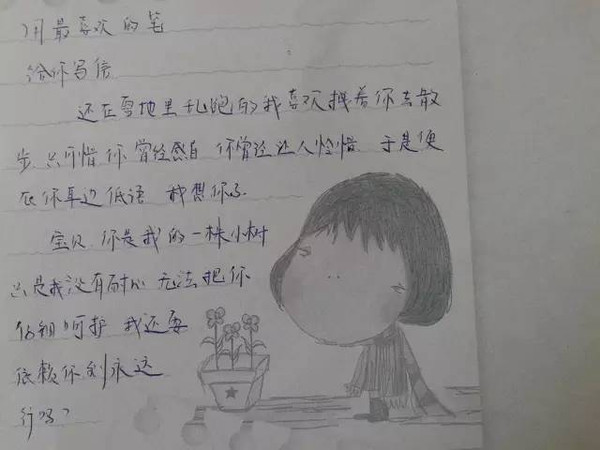 用最喜欢的笔
给你写信
还在雪地里乱跑的我喜欢拽着你去散
步 只可惜你曾经感自 你曾经让人怜惜 于是便
在你耳边低语 我想你了
宝贝 你是我的一株小树
只是我没有耐心 无法把你
仿细呵护 我还要
依赖你到永远
行吗?